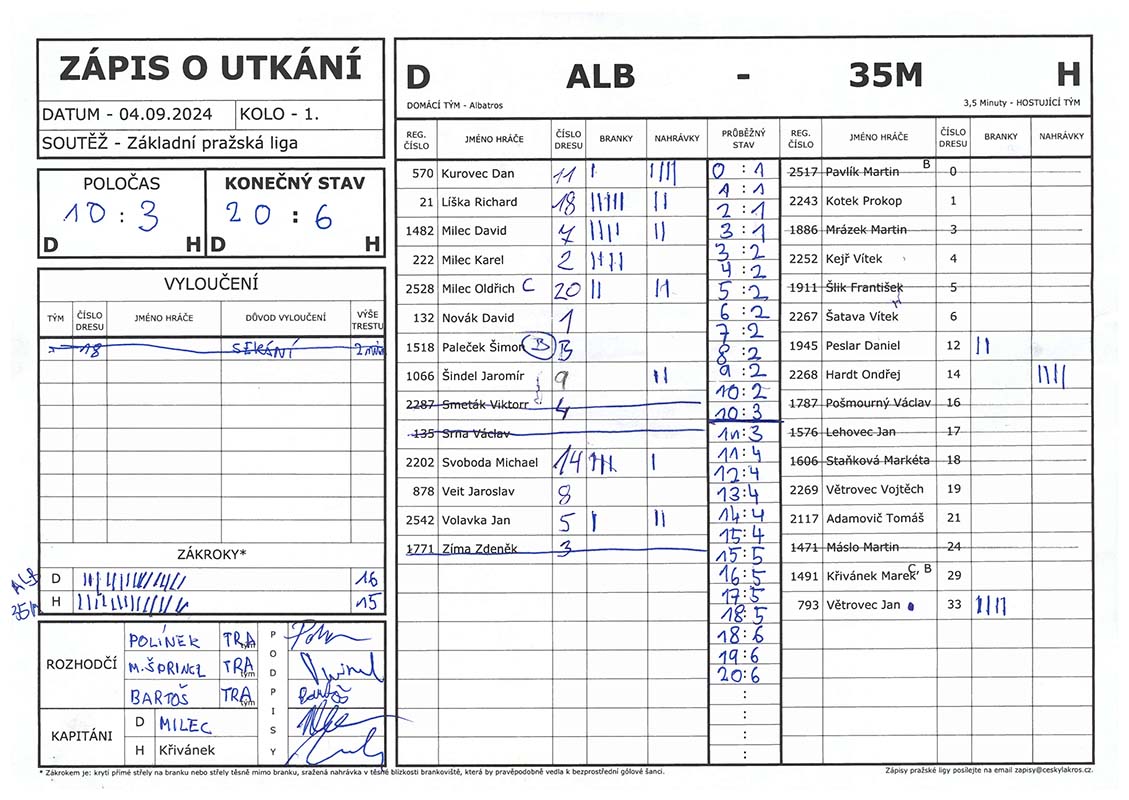 ZÁPIS O UTKÁNÍ
DATUM - 04.09.2024 KOLO - 1.
SOUTĚŽ - Základní pražská liga
POLOČAS KONEČNÝ STAV
10 : 3 20 : 6
D H D H
VYLOUČENÍ
TÝM ČÍSLO DRESU JMÉNO HRÁČE DŮVOD VYLOUČENÍ VÝŠE TRESTU
18 SEKÁNÍ 2 min
ZÁKROKY*
ALB D 16
35M H 15
ROZHODČÍ
POLÍNEK TRA tým
M.ŠPRINCL TRA tým
BARTOŠ TRA tým
PODPISY
KAPITÁNI
D MILEC
H Křivánek
D ALB - 35M H
DOMÁCÍ TÝM - Albatros 3,5 Minuty - HOSTUJÍCÍ TÝM
REG. ČÍSLO JMÉNO HRÁČE ČÍSLO DRESU BRANKY NAHRÁVKY PRŮBĚŽNÝ STAV REG. ČÍSLO JMÉNO HRÁČE ČÍSLO DRESU BRANKY NAHRÁVKY
570 Kurovec Dan 11
21 Líška Richard 18
1482 Milec David 7
222 Milec Karel 2
2528 Milec Oldřich C 20
132 Novák David 1
1518 Paleček Šimon B B
1066 Šindel Jaromír 9
2287 Smeták Viktorr 4
135 Srna Václav
2202 Svoboda Michael 14
878 Veit Jaroslav 8
2542 Volavka Jan 5
1771 Zíma Zdeněk 3
0 : 1
1 : 1
2 : 1
3 : 1
3 : 2
4 : 2
5 : 2
6 : 2
7 : 2
8 : 2
9 : 2
10 : 2
10 : 3
11 : 3
11 : 4
12 : 4
13 : 4
14 : 4
15 : 4
15 : 5
16 : 5
17 : 5
18 : 5
18 : 6
19 : 6
20 : 6
2517 Pavlík Martin B 0
2243 Kotek Prokop 1
1886 Mrázek Martin 3
2252 Kejř Vítek 4
1911 Šlik František 5
2267 Šatava Vítek 6
1945 Peslar Daniel 12
2268 Hardt Ondřej 14
1787 Pošmourný Václav 16
1576 Lehovec Jan 17
1606 Staňková Markéta 18
2269 Větrovec Vojtěch 19
2117 Adamovič Tomáš 21
1471 Máslo Martin 24
1491 Křivánek Marek C B 29
793 Větrovec Jan 33
* Zákrokem je: krytí přímé střely na branku nebo střely těsně mimo branku, sražená nahrávka v těsné blízkosti brankoviště, která by pravěpodobně vedla k bezprostřední gólové šanci.
Zápisy pražské ligy posílejte na email zapisy@ceskylakros.cz.